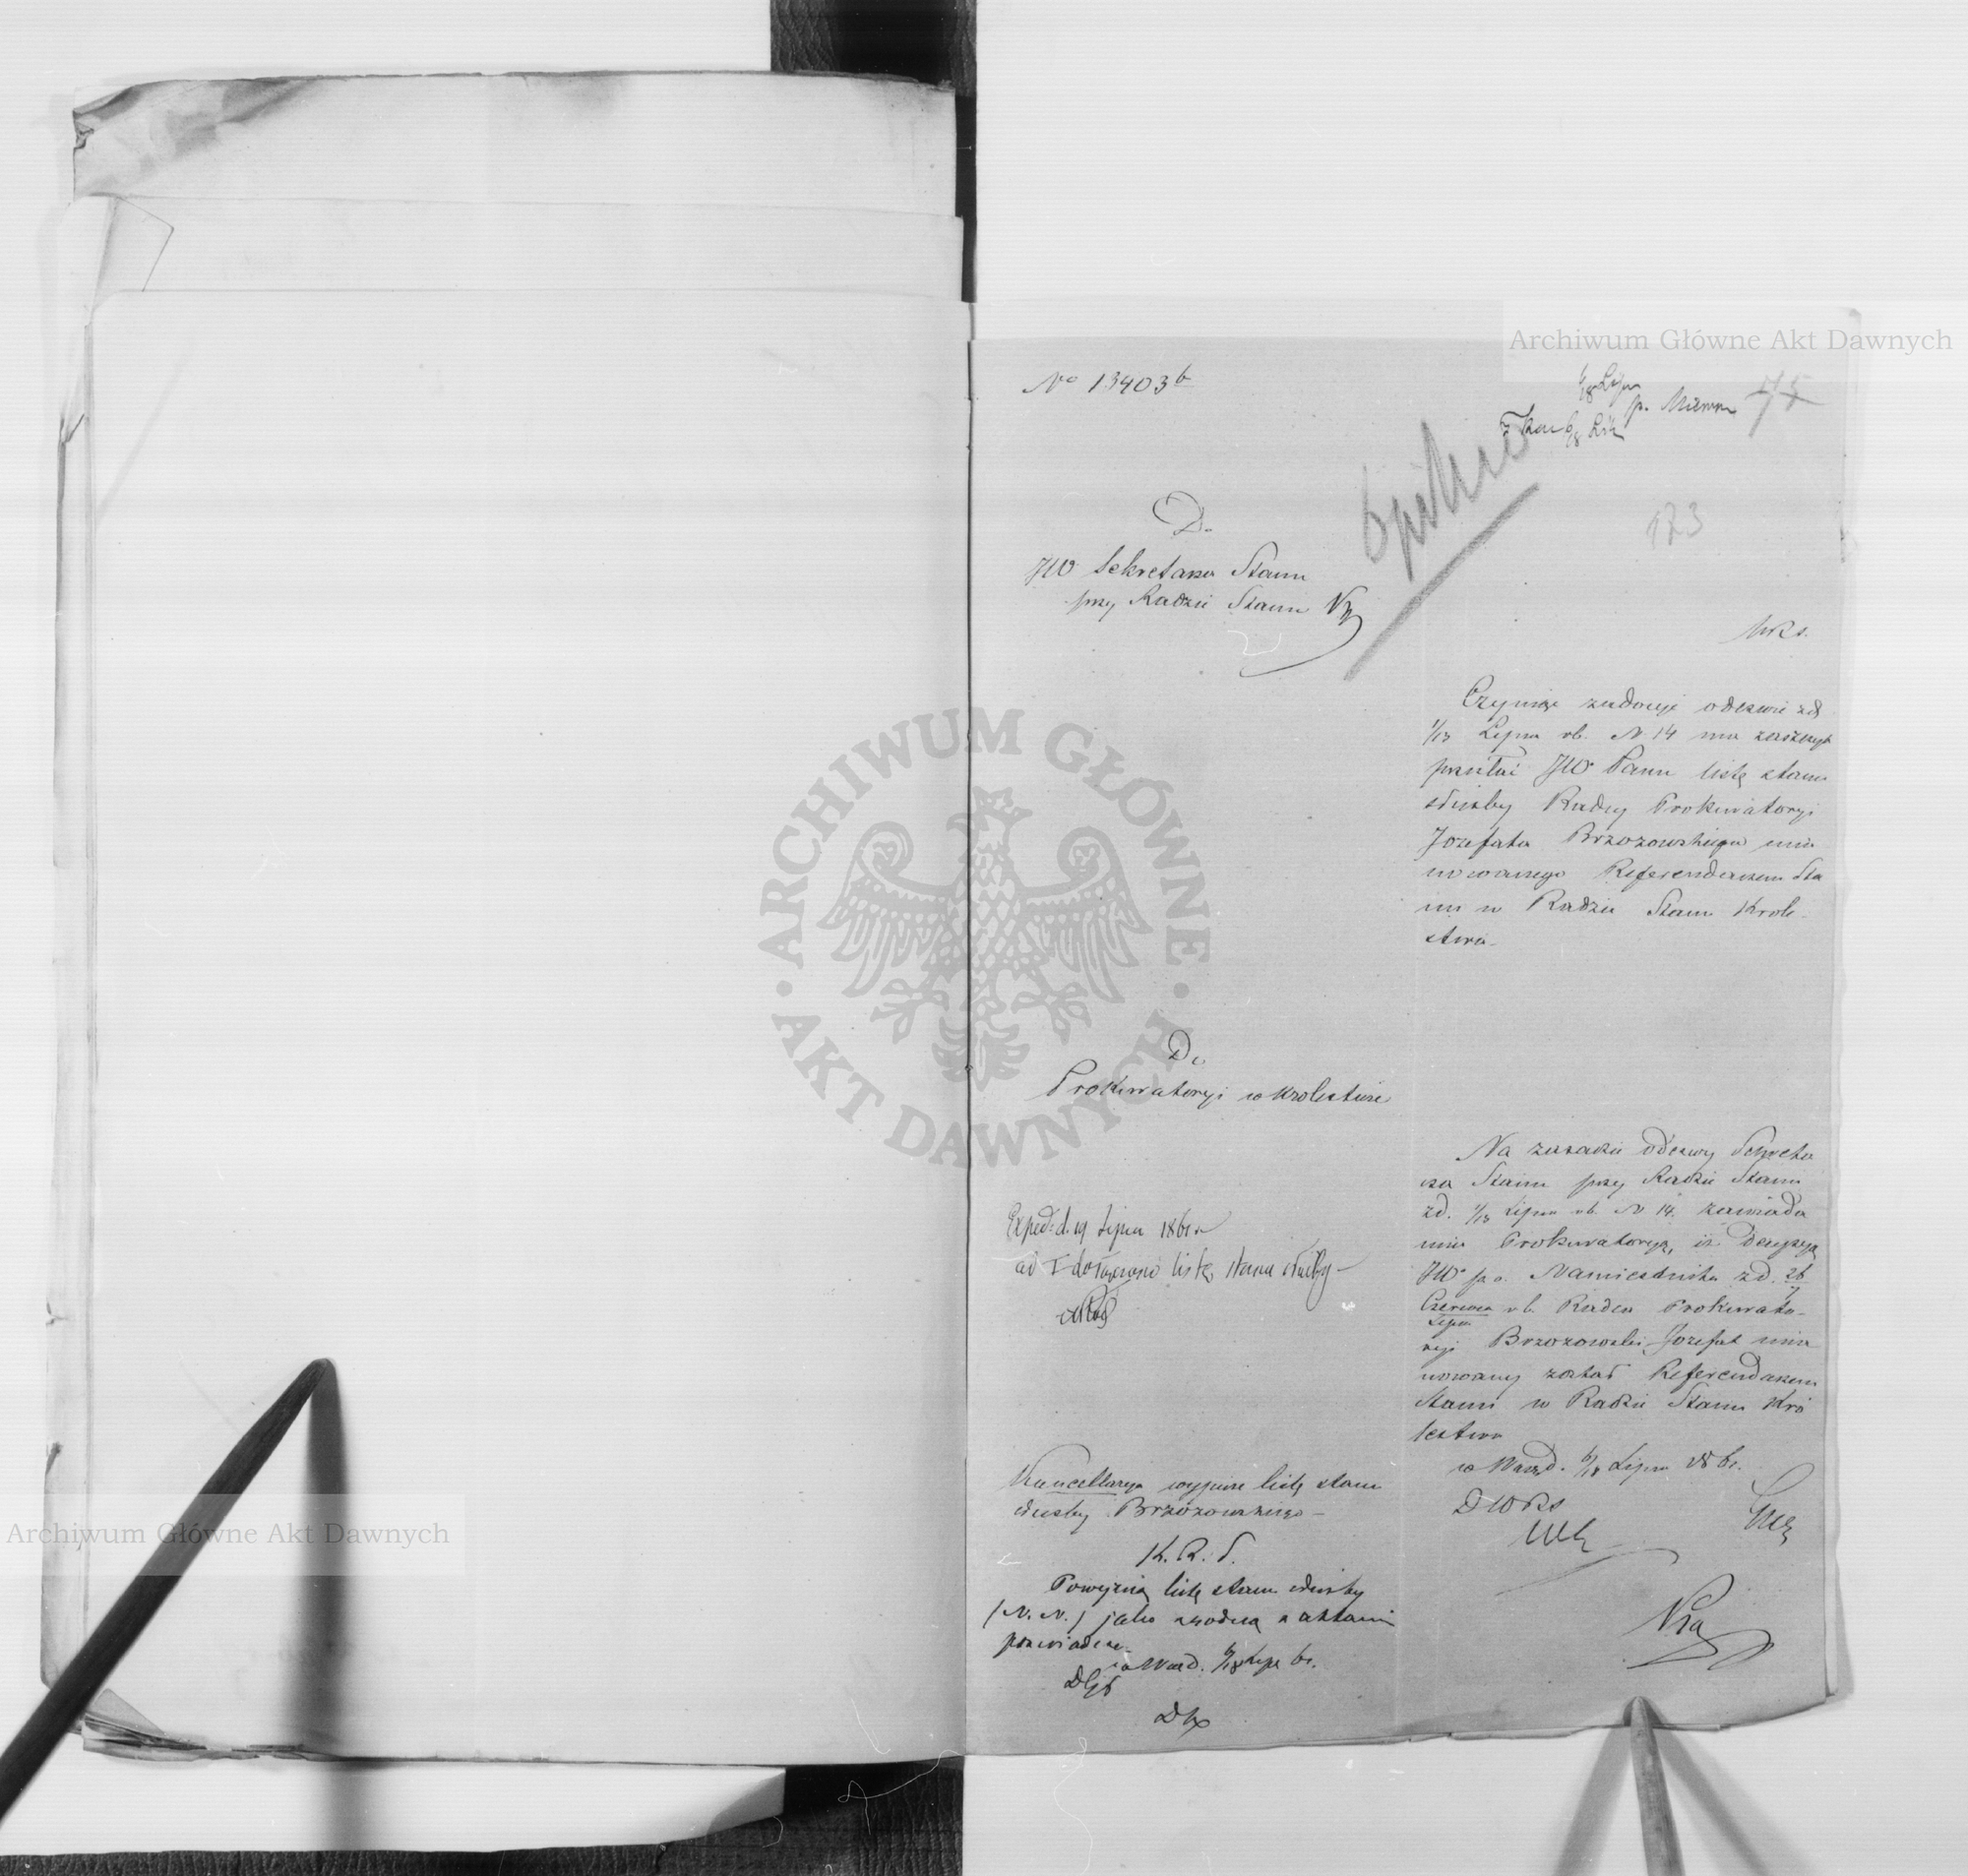 Archiwum Główne Akt Dawnych
No 13403 b
6/18 Lipca
75
Spiesznie
173
Do
JW Sekretarza Stanu
przy Radzie Stanu
KRS.
Czyniąc zadosyć odezwie z d.
1/13 Lipca rb. N. 14 ma zaszczyt
przesłać JW Panu listę stanu
służby Radcy Prokuratoryi
Jozefata Brzozowskiego mia
nowanego Referendarzem Sta
nu w Radzie Stanu Króle-
stwa-
ARCHIWUM GŁÓWNE
AKT DAWNYCH
Do
Prokuratoryi w Krolestwie
Na zasadzie odezwy Sekreta
rza Stanu przy Radzie Stanu
z d. 1/13 Lipca rb. N 14. zawiada
mia Prokuratoryą, iż Decyzyą
JW p. o. Namiestnika z d. 26/
Czerwca rb. Radca Prokurato-
Lipca
ryi Brzozowski Jozefat mia
nowany został Referendarzem
Stanu w Radzie Stanu Kró
lestwa
w Warsz d. 6/18 Lipca 1861.
Exped: d. 19 Lipca 1861 r
ad I dołączono listę stanu służby-
Kancellarya wypisze listę stanu
służby Brzozowskiego-
K. R. S.
Powyższą listę stanu służby
(N. N.) jako zgodną z aktami
poświadcza-
w Warsz d. 6/18 Lipca 61.
DW RS
Archiwum Główne Akt Dawnych